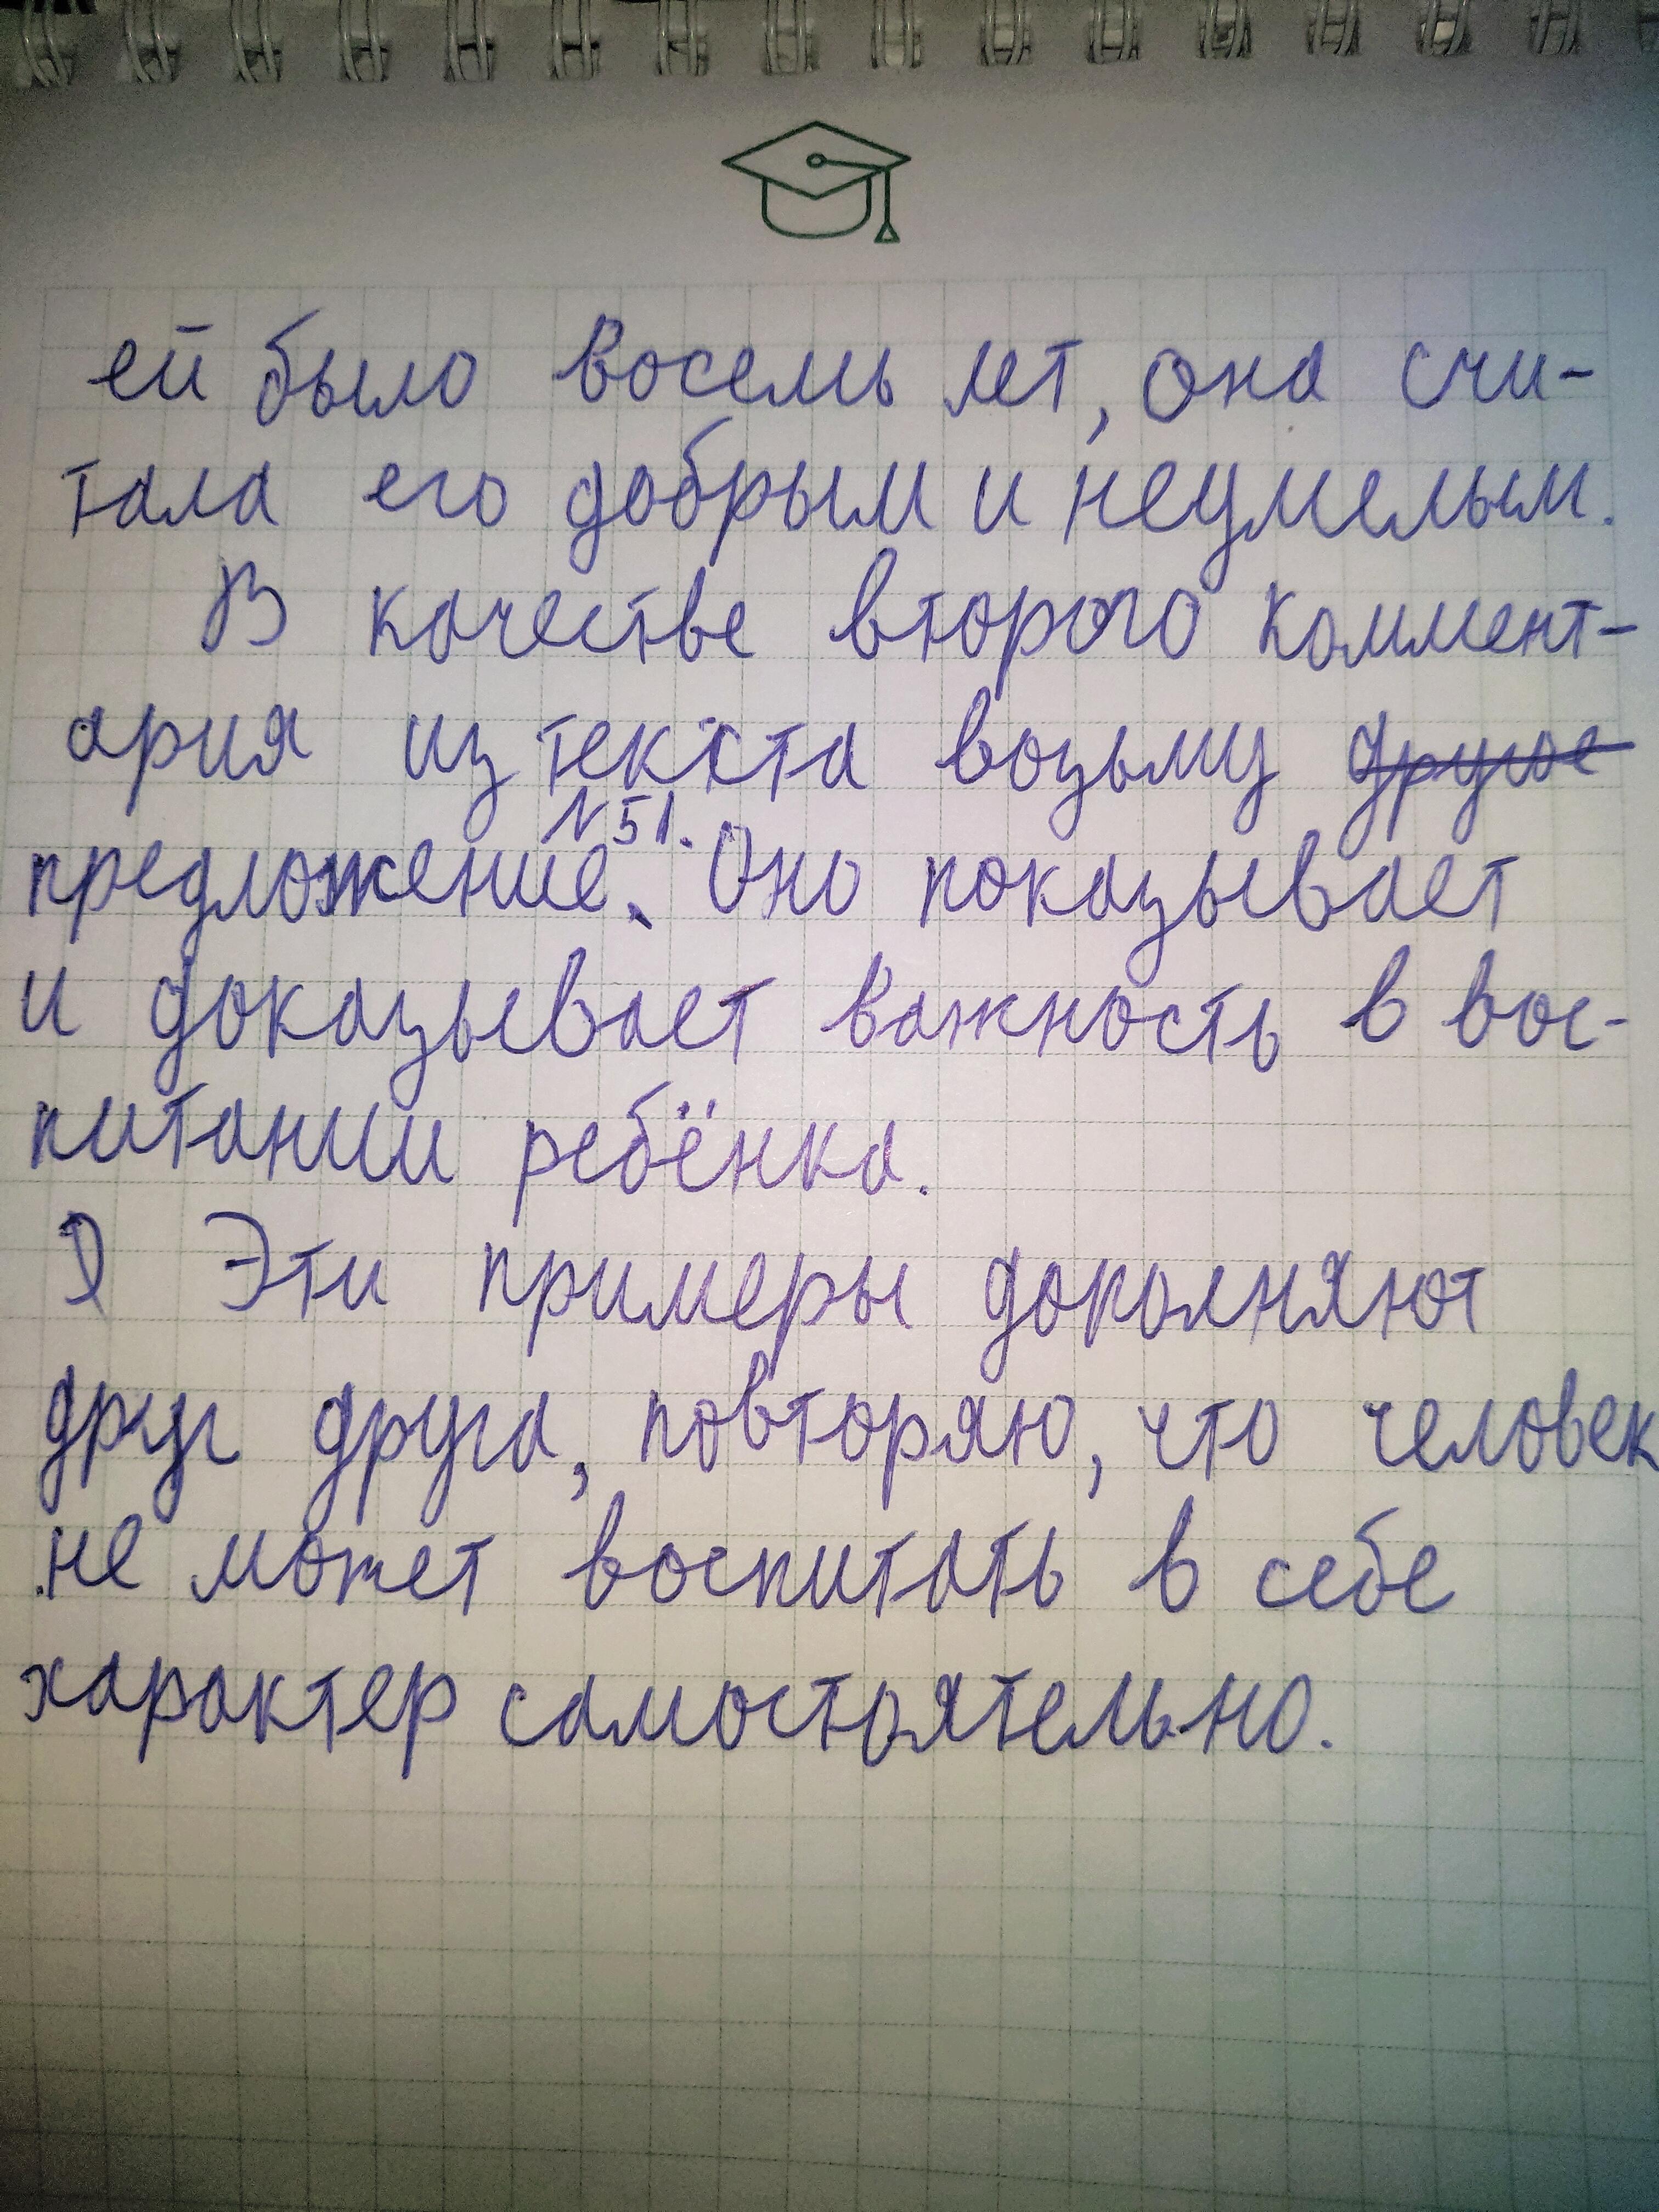 ей было восемь лет, она счи-
тала его добрым и неумелым.
В качестве второго коммент-
ария из текста возьму другое
предложение №51. Оно показывает
и доказывает важность в вос-
питании ребёнка.
Эти примеры дополняют
друг друга, повторяю, что человек
не может воспитать в себе
характер самостоятельно.